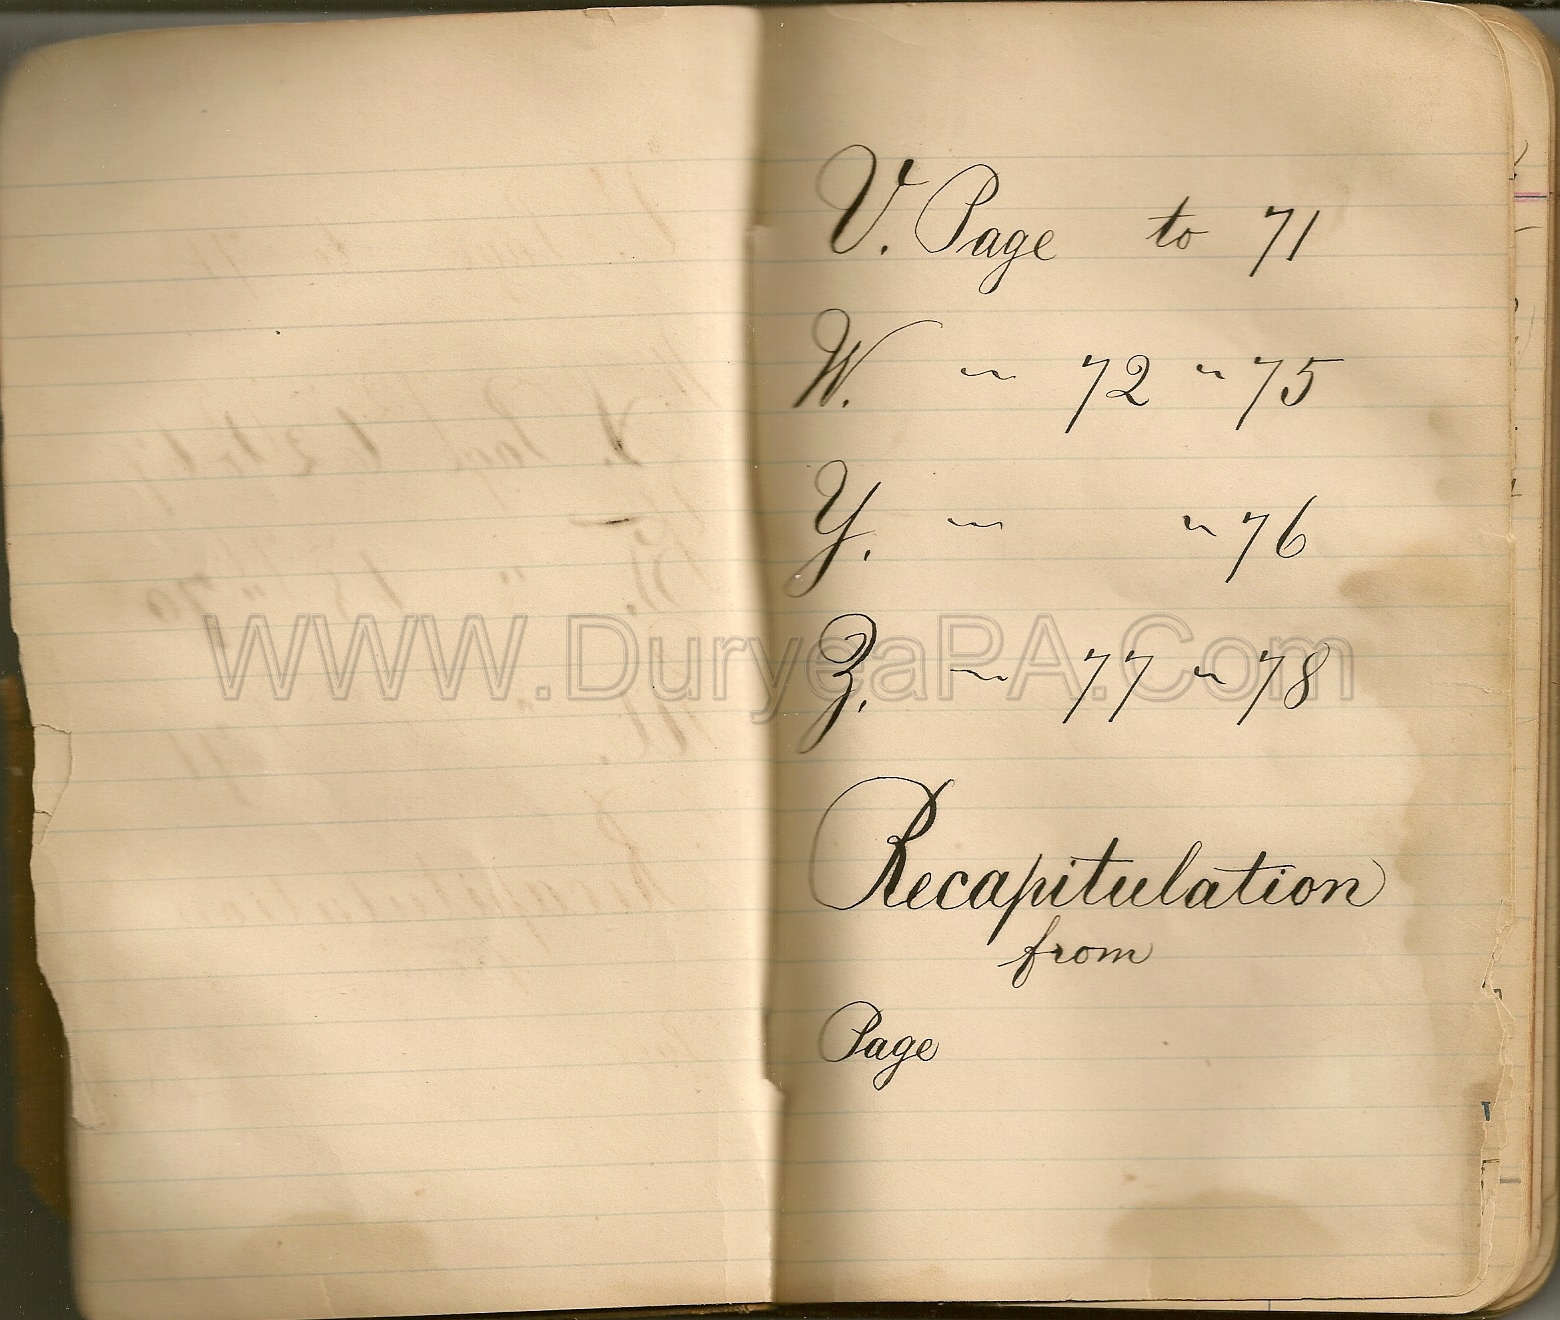 V. Page to 71
W. " 72 " 75
Y. " " 76
Z. " 77 " 78
Recapitulation
from
Page
WWW.DuryeaPA.Com